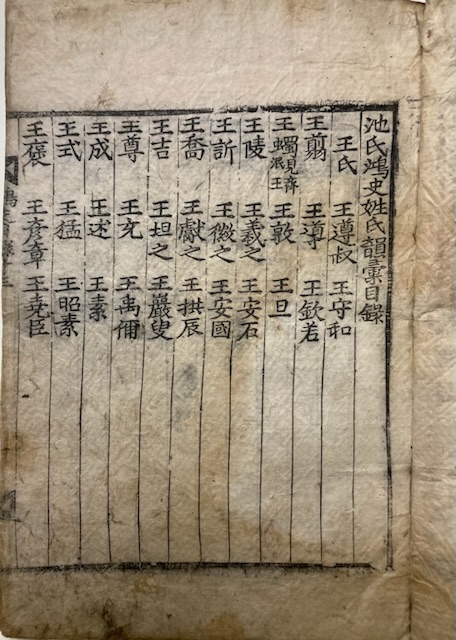 池氏鴻史姓氏韻彙目錄
王氏 王遵叔 王守和
王翦 王導 王欽若
王蠋見齊王派 王敦 王旦
王陵 王羲之 王安石
王訢 王徽之 王安國
王喬 王獻之 王拱辰
王吉 王坦之 王巖叟
王尊 王充 王禹偁
王成 王述 王素
王式 王猛 王昭素
王褒 王彥章 王堯臣